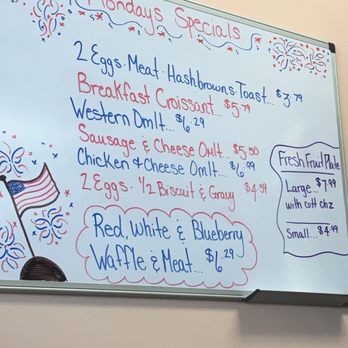 Mondays Specials
2 Eggs · Meat · Hashbrowns · Toast... $3.79
Breakfast Croissant... $5.79
Western Omlt... $6.29
Sausage & Cheese Omlt... $5.50
Chicken & Cheese Omlt... $6.99
2 Eggs · 1/2 Biscuit & Gravy $4.59
Red, White & Blueberry
Waffle & Meat... $6.29
Fresh Fruit Plate
Large... $7.99
with cott chz
Small... $4.99